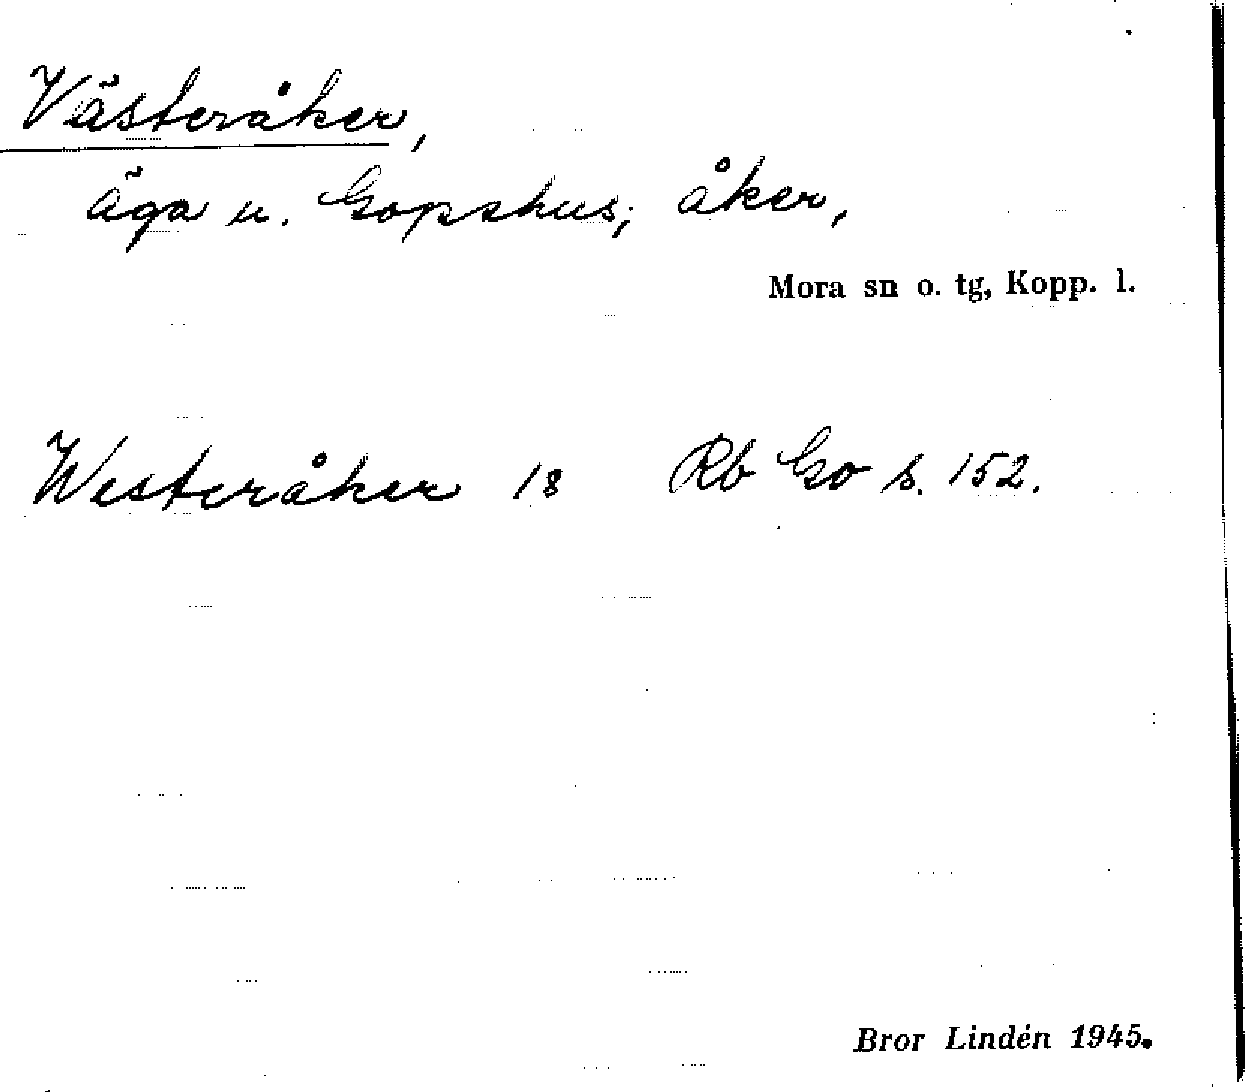 Västeråker,
äga u. Gopshus; åker,
Mora sn o. tg, Kopp. l.
Westeråker 18 Rb Go s. 152.
Bror Lindén 1945.